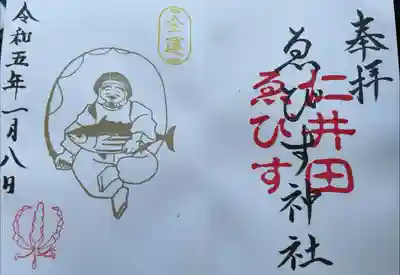 奉拝
ゑびす神社
仁井田
ゑびす
金運
令和五年一月八日